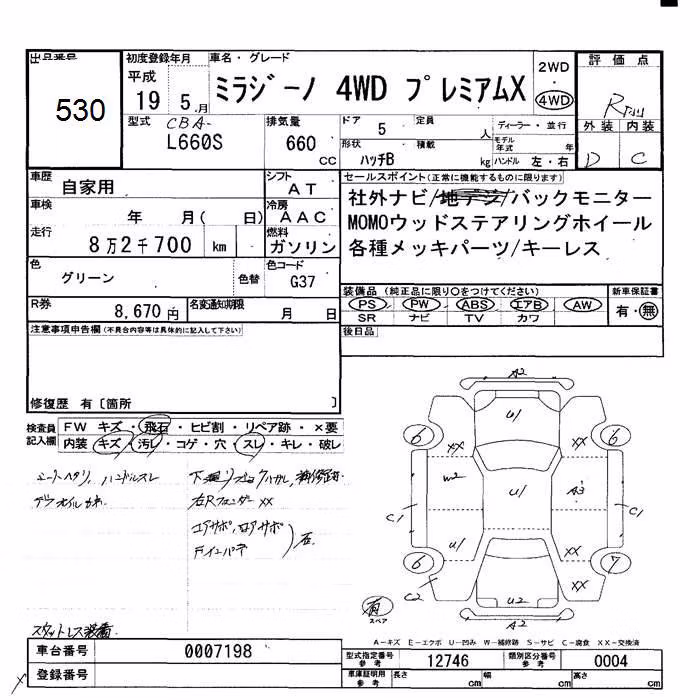 出品番号 初度登録年月 車名・グレード 2WD 評価点
530 平成 19 5.月 ミラジーノ 4WD プレミアムX 4WD R
型式 CBA- L660S 排気量 660 cc ドア 5 定員 人 ディーラー・並行 外装 内装
形状 ハッチB 積載 kg モデル年式 年 ハンドル 左・右 D C
車歴 自家用 シフト AT セールスポイント(正常に機能するものに限ります)
車検 年 月( 日) 冷房 AAC 社外ナビ/地デジ/バックモニター
走行 8万2千700 km 燃料 ガソリン MOMOウッドステアリングホイール
各種メッキパーツ/キーレス
色 グリーン 色替 色コード G37
装備品(純正品に限り○をつけてください) 新車保証書
PS PW ABS エアB AW 有・無
SR ナビ TV カワ
R券 8,670円 名変通知期限 月 日
後日品
注意事項申告欄(不具合内容等は具体的に記入して下さい)
修復歴 有〔箇所 〕
検査員記入欄 FW キズ・飛石・ヒビ割・リペア跡・×要
内装 キズ・汚レ・コゲ・穴・スレ・キレ・破レ
シートヘタリ、ハンドルスレ
デフオイルカネ
右Rフェンダー XX
コアサポ、ロアサポ
右
スタットレス装着.
A2
U/
6 XX XX 6
W2 A3
C1 U/ C1
U/ XX
6 XX 7
C2 U2
A2
有 スペア
A-キズ E-エクボ U-凹み W-補修跡 S-サビ C-腐食 XX-交換済
車台番号 0007198
型式指定番号 参考 12746 類別区分番号 参考 0004
登録番号
車庫証明用 参考 長さ cm 幅 cm 高さ cm